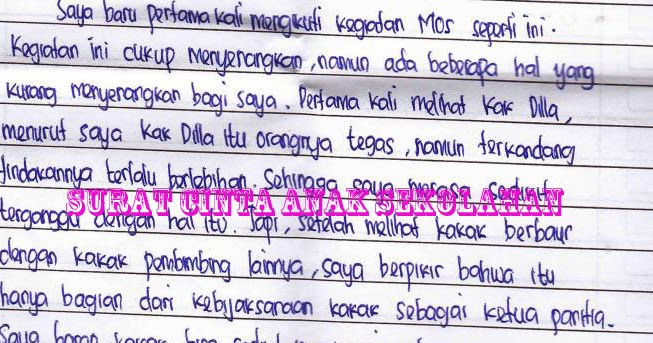 Saya baru pertama kali mengikuti kegiatan MOS seperti ini.
Kegiatan ini cukup menyenangkan, namun ada beberapa hal yang
kurang menyenangkan bagi saya. Pertama kali melihat Kak Dilla,
menurut saya Kak Dilla itu orangnya tegas, namun terkandang
tindakannya terlalu berlebihan. Sehingga saya merasa sedikit
SURAT CINTA ANAK SEKOLAHAN
terganggu dengan hal itu. Tapi, setelah melihat kakak berbaur
dengan kakak pembimbing lainnya, saya berpikir bahwa itu
hanya bagian dari kebijaksaraan kakak sebagai ketua panitia.
Saya